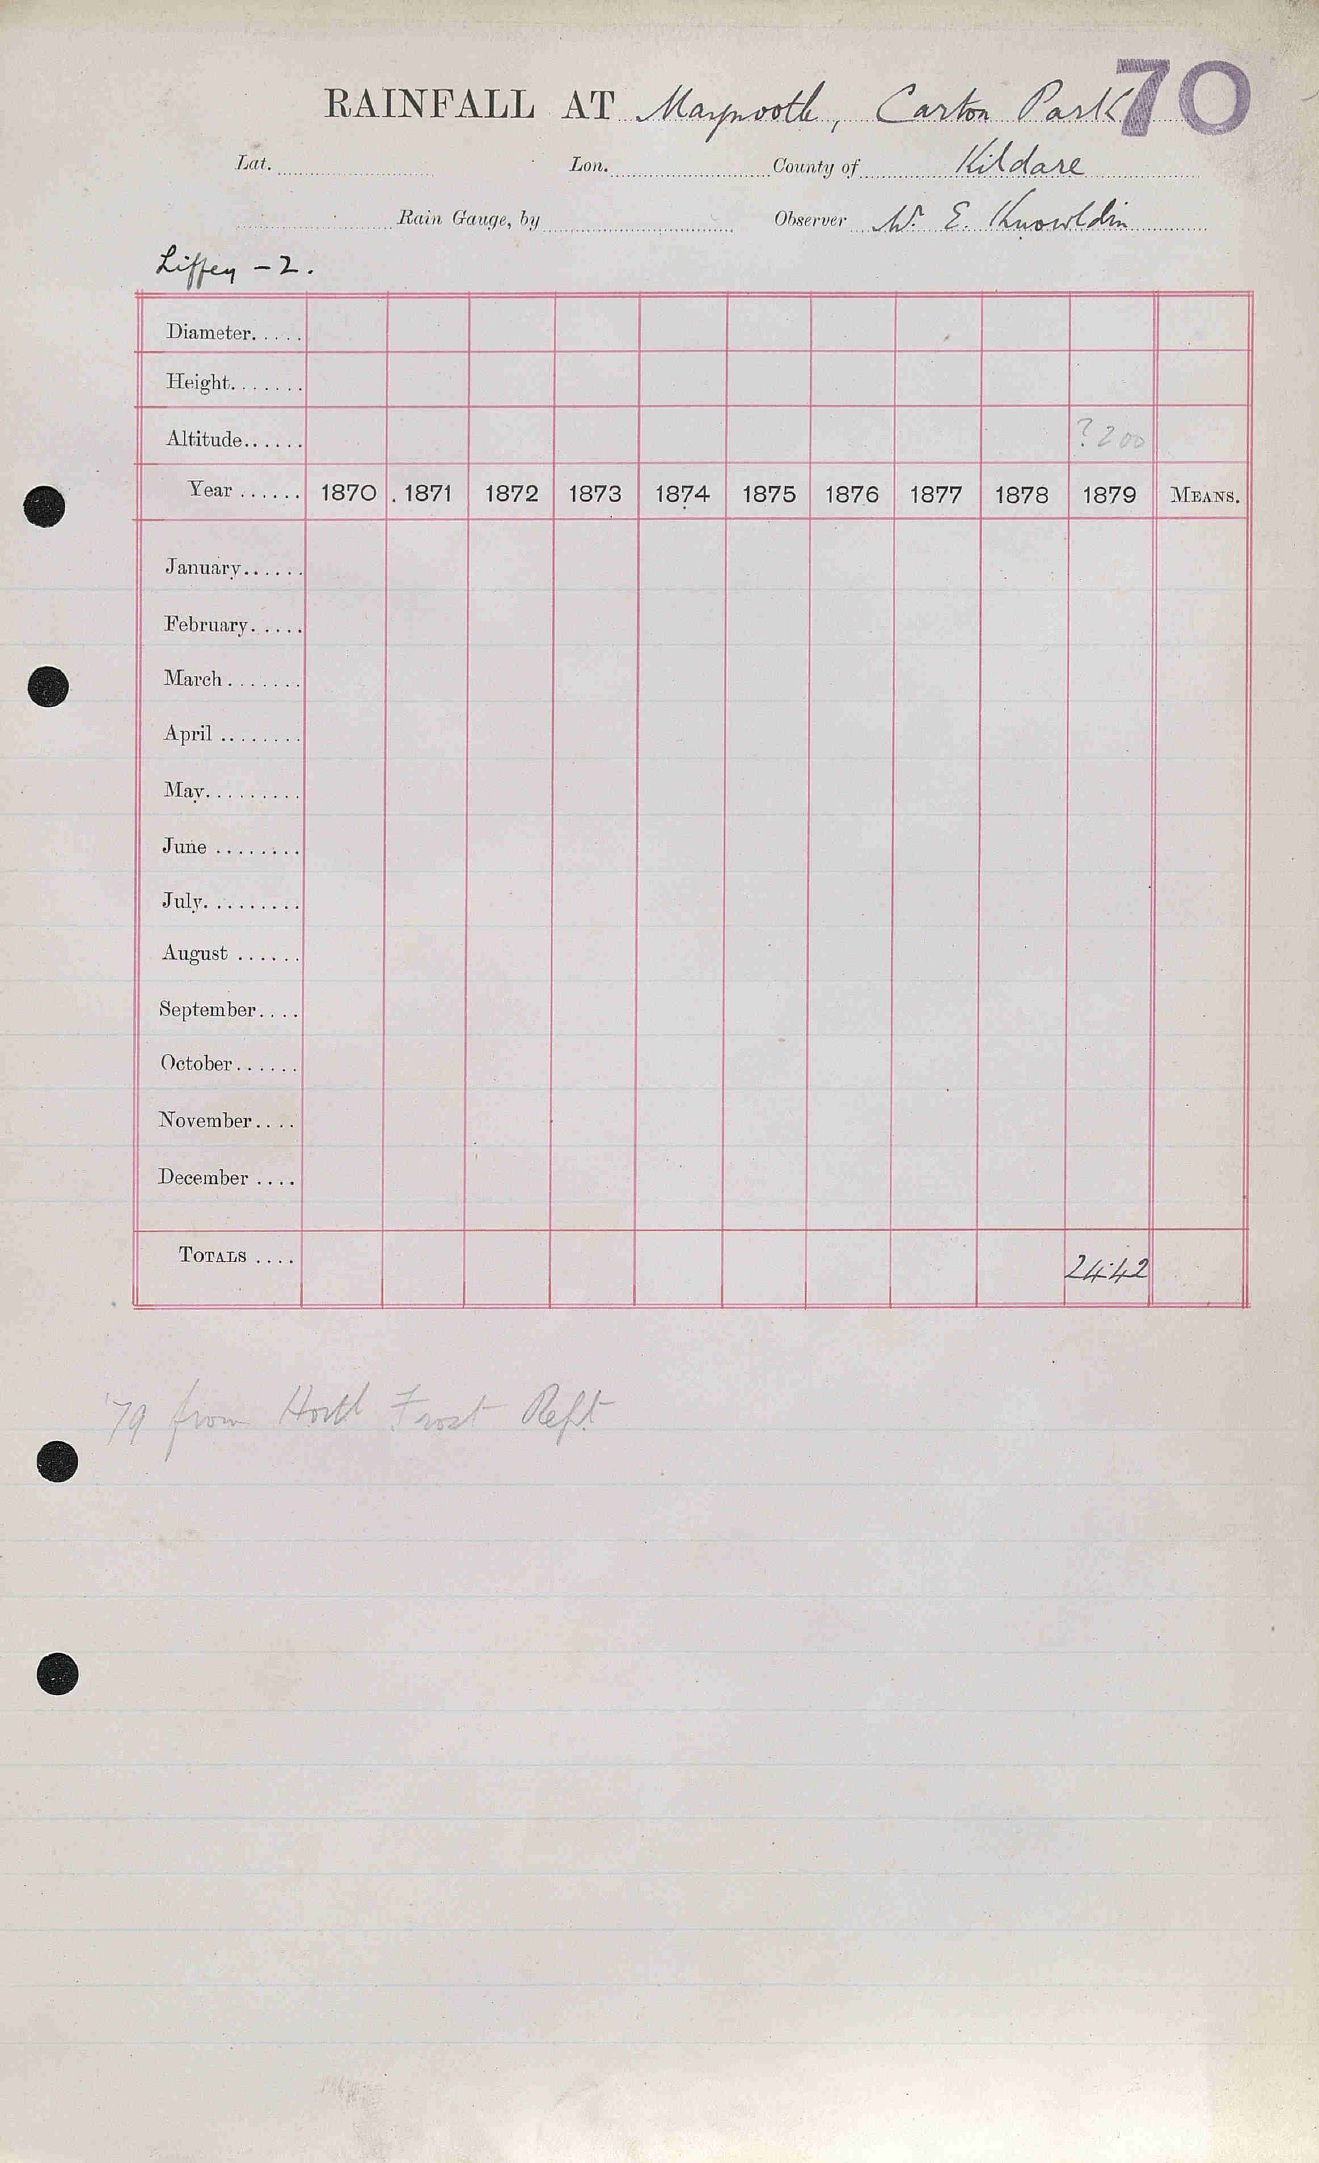 70
RAINFALL AT Maynooth, Carton Park
Lat. Lon. County of Kildare
Rain Gauge, by Observer W. E. Knowldin
Liffey - 2.
Diameter.....
Height.......
Altitude...... ?200
Year...... 1870 1871 1872 1873 1874 1875 1876 1877 1878 1879 MEANS.
January......
February.....
March.......
April........
May.........
June........
July.........
August......
September....
October......
November....
December....
TOTALS.... 24.42
'79 from Hortl Frost Rept